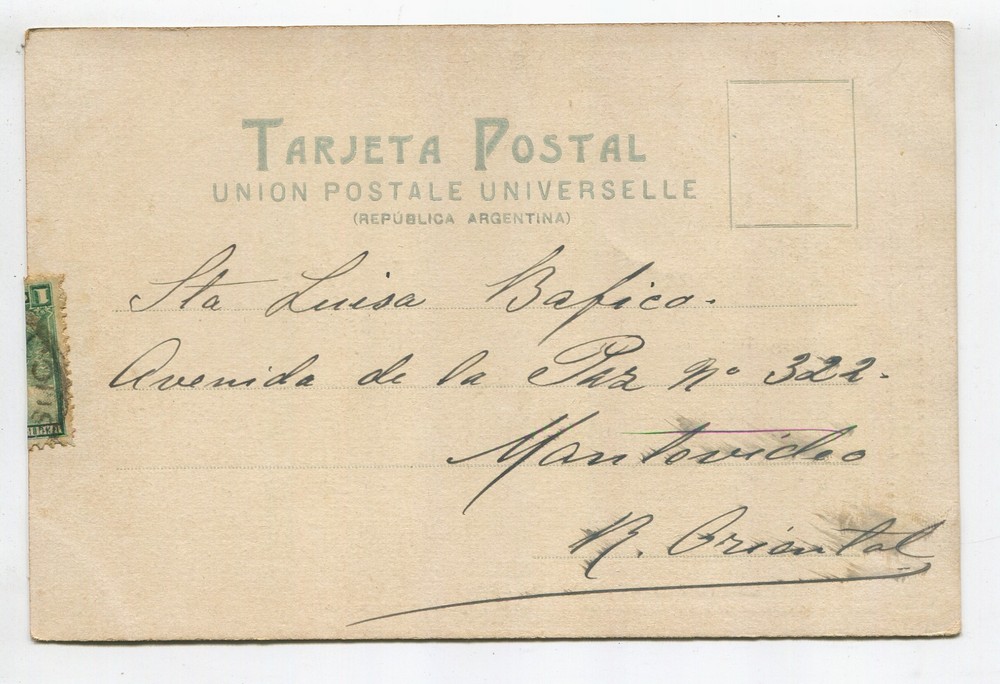 TARJETA POSTAL
UNION POSTALE UNIVERSELLE
(REPÚBLICA ARGENTINA)
Sta Luisa Bafico.
Avenida de la Paz Nº 322.
Montevideo
R. Oriental